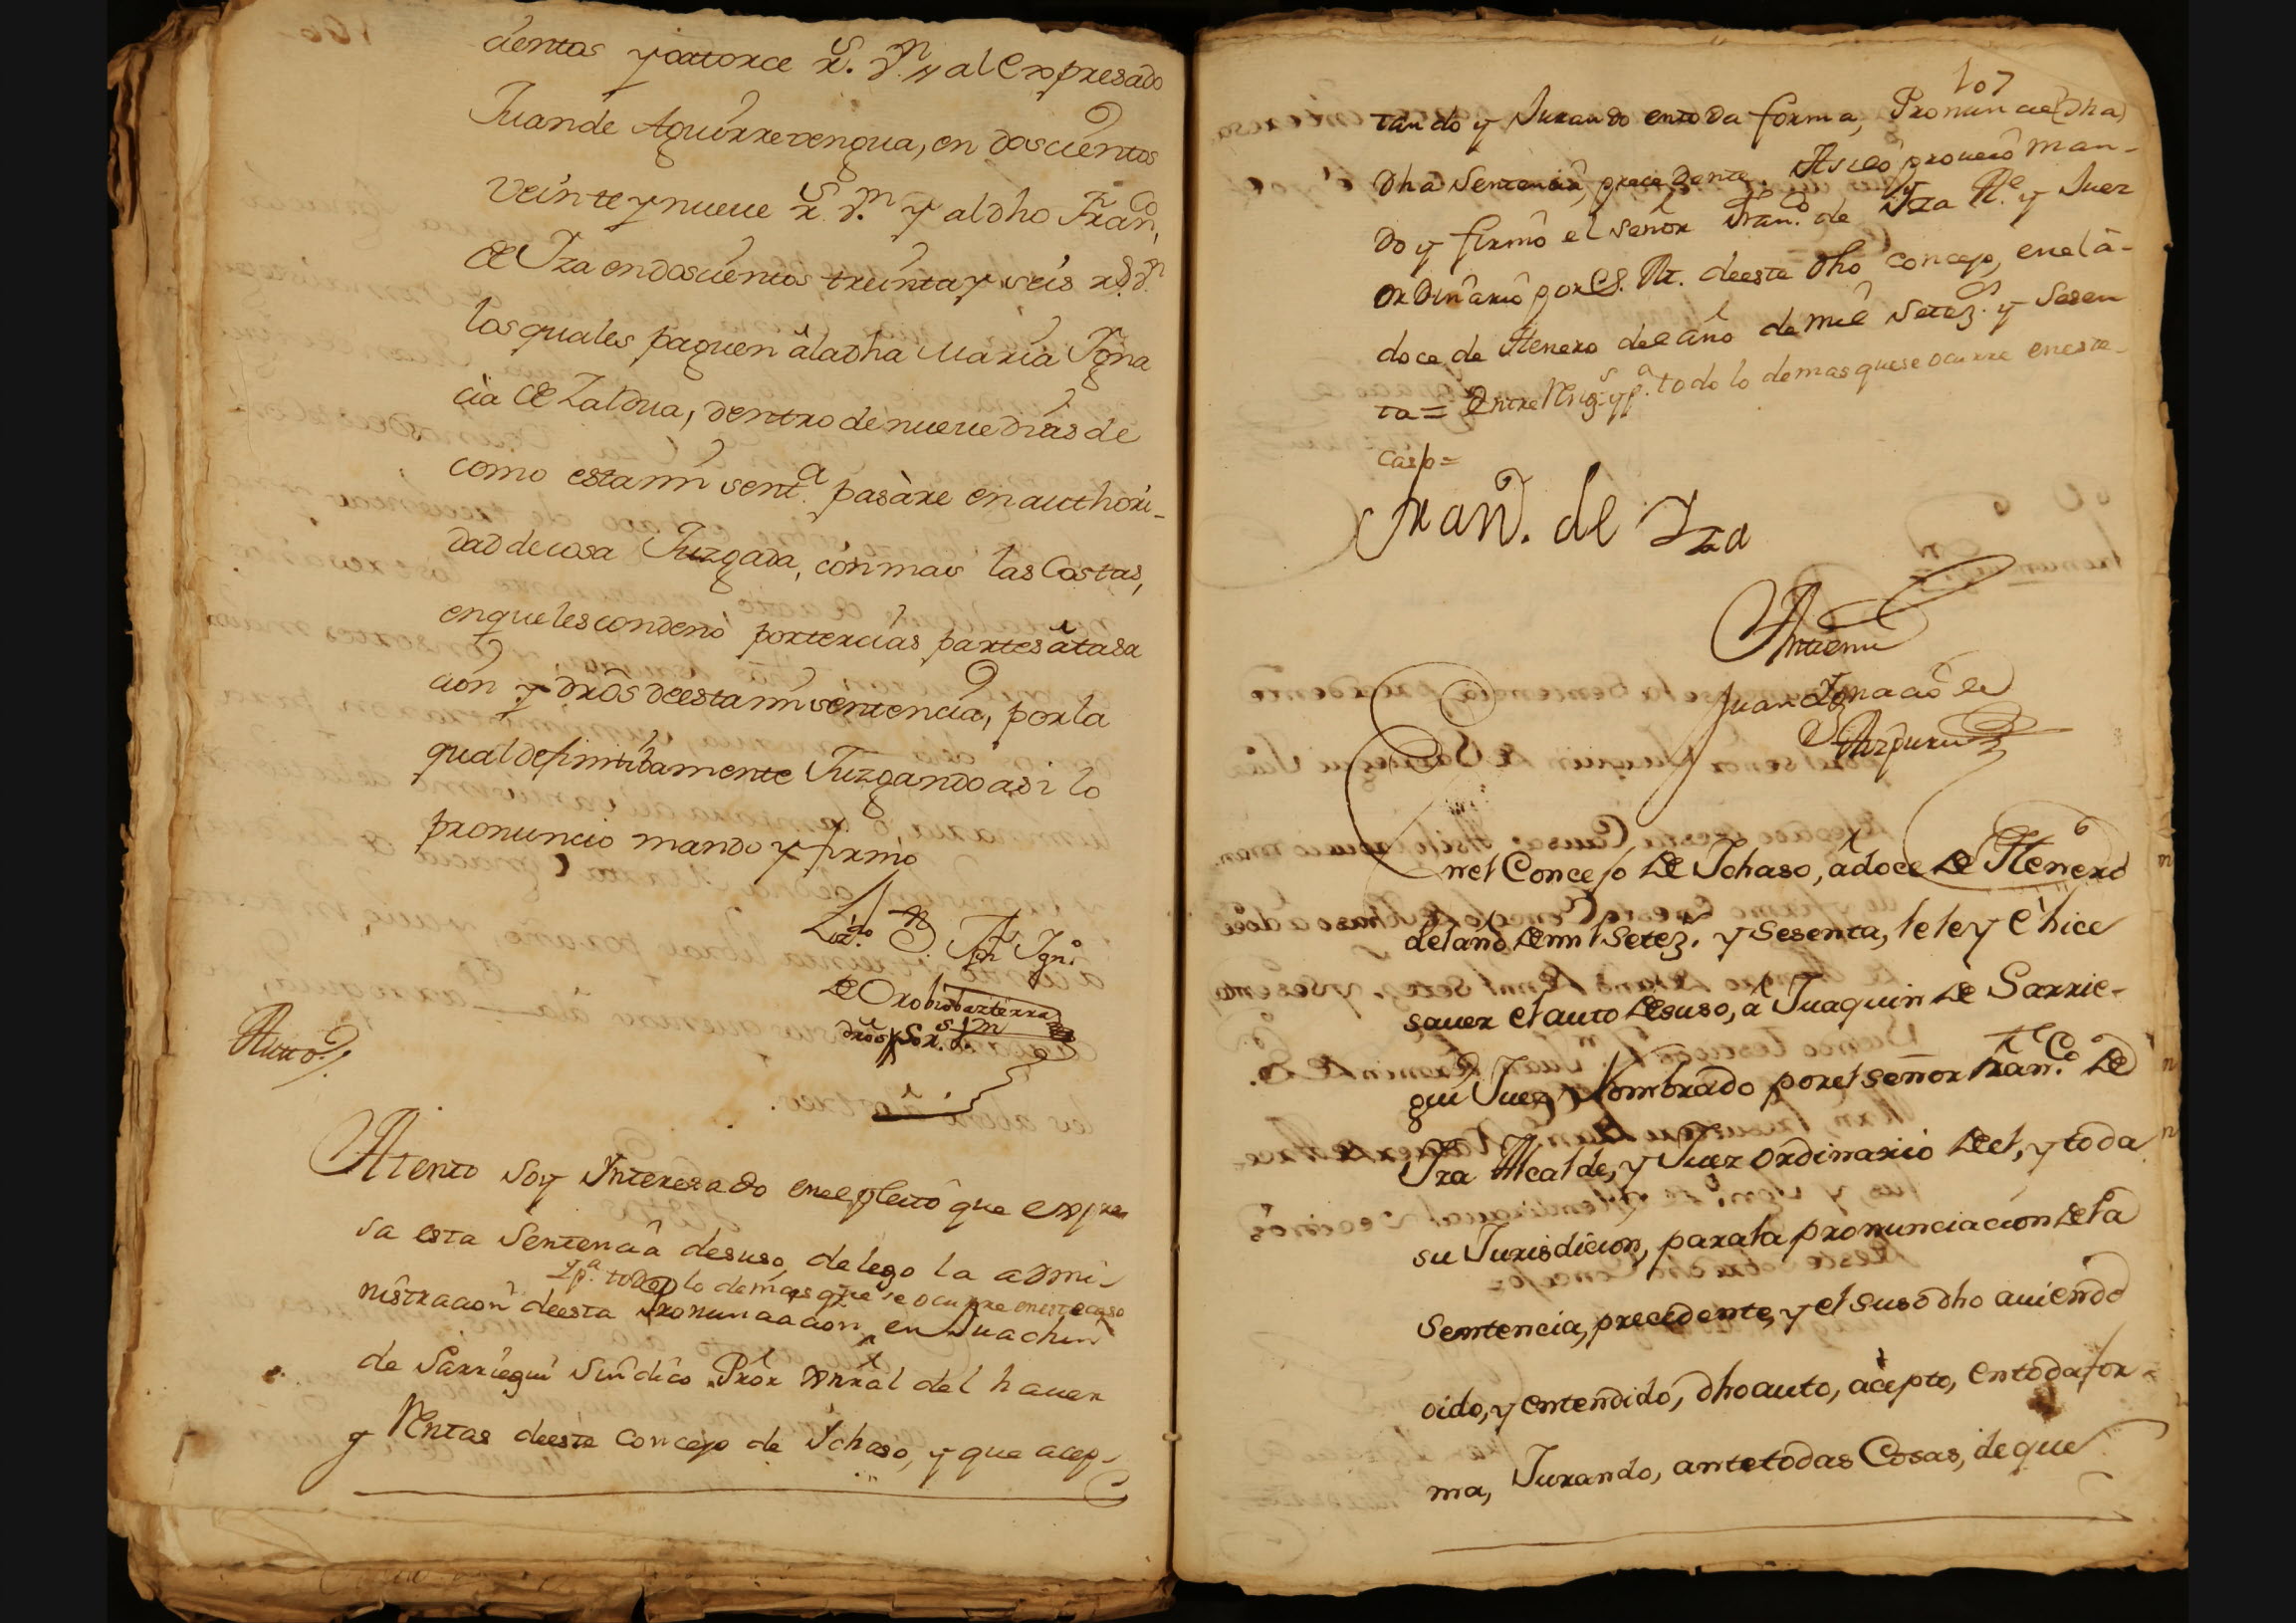 cientos y catorce r.s v.n al expresado
Juan de Aguirrerengua, en doscientos
veinte y nueve r.s v.n y al dho Fran.co
de Yza en doscientos treinta y seis r.s v.n
los quales paguen â la dha Maria Ygna
cia de Zaldua, dentro de nueve dias de
como esta mi sent.a pasàre en authori-
dad de cosa Juzgada, con mas las Costas,
en que les condenò por tercias partes â tasa
cion y dros de esta mi sentencia, por la
qual definitibamente Juzgando asi lo
pronuncio mando y firmo
Liz.do D.n Jph Ygn.o
de Orobiobazterra
dros
Auto
Atento soy Ynteresado en el pleito que expre
sa esta Sentencia desuso, delego la admi-
y p.a todo lo demas que se ocurre en este caso
nistracion de esta Pronunciacion en Juachin
de Sarriegui Sindico Pror Gnral del haver
y Rentas de este concejo de Ychaso, y que acep-
107
tando y Jurando en toda forma, Pronuncie (dha)
dha Sentencia, precedente. Asi lo proueiò man-
do y firmò el señor Fran.co de Yza Al.e y Juez
ordinario por S. M. de este dho concejo, en el â
doce de Henero del año de mil Setez.s y Sesen
ta = Entre Reng.s y p.a todo lo demas que se ocurre en este
caso =
Fran.co de Yza
Antemi
Juan Ygnacio de
Aizpuru
En el Concejo de Ychaso, â doce de Henero
del año de mil Setez.s y Sesenta, le ley è hice
saver el auto desuso, â Juaquin de Sarrie-
gui Juez Nombrado por el señor Fran.co de
Yza Alcalde, y Juez ordinario de el, y toda
su Jurisdicion, para la pronunciacion de la
Sentencia, precedente, y el susodho auiendo
oido, y entendido, dho auto, acepto, en toda for-
ma, Jurando, ante todas Cosas, de que